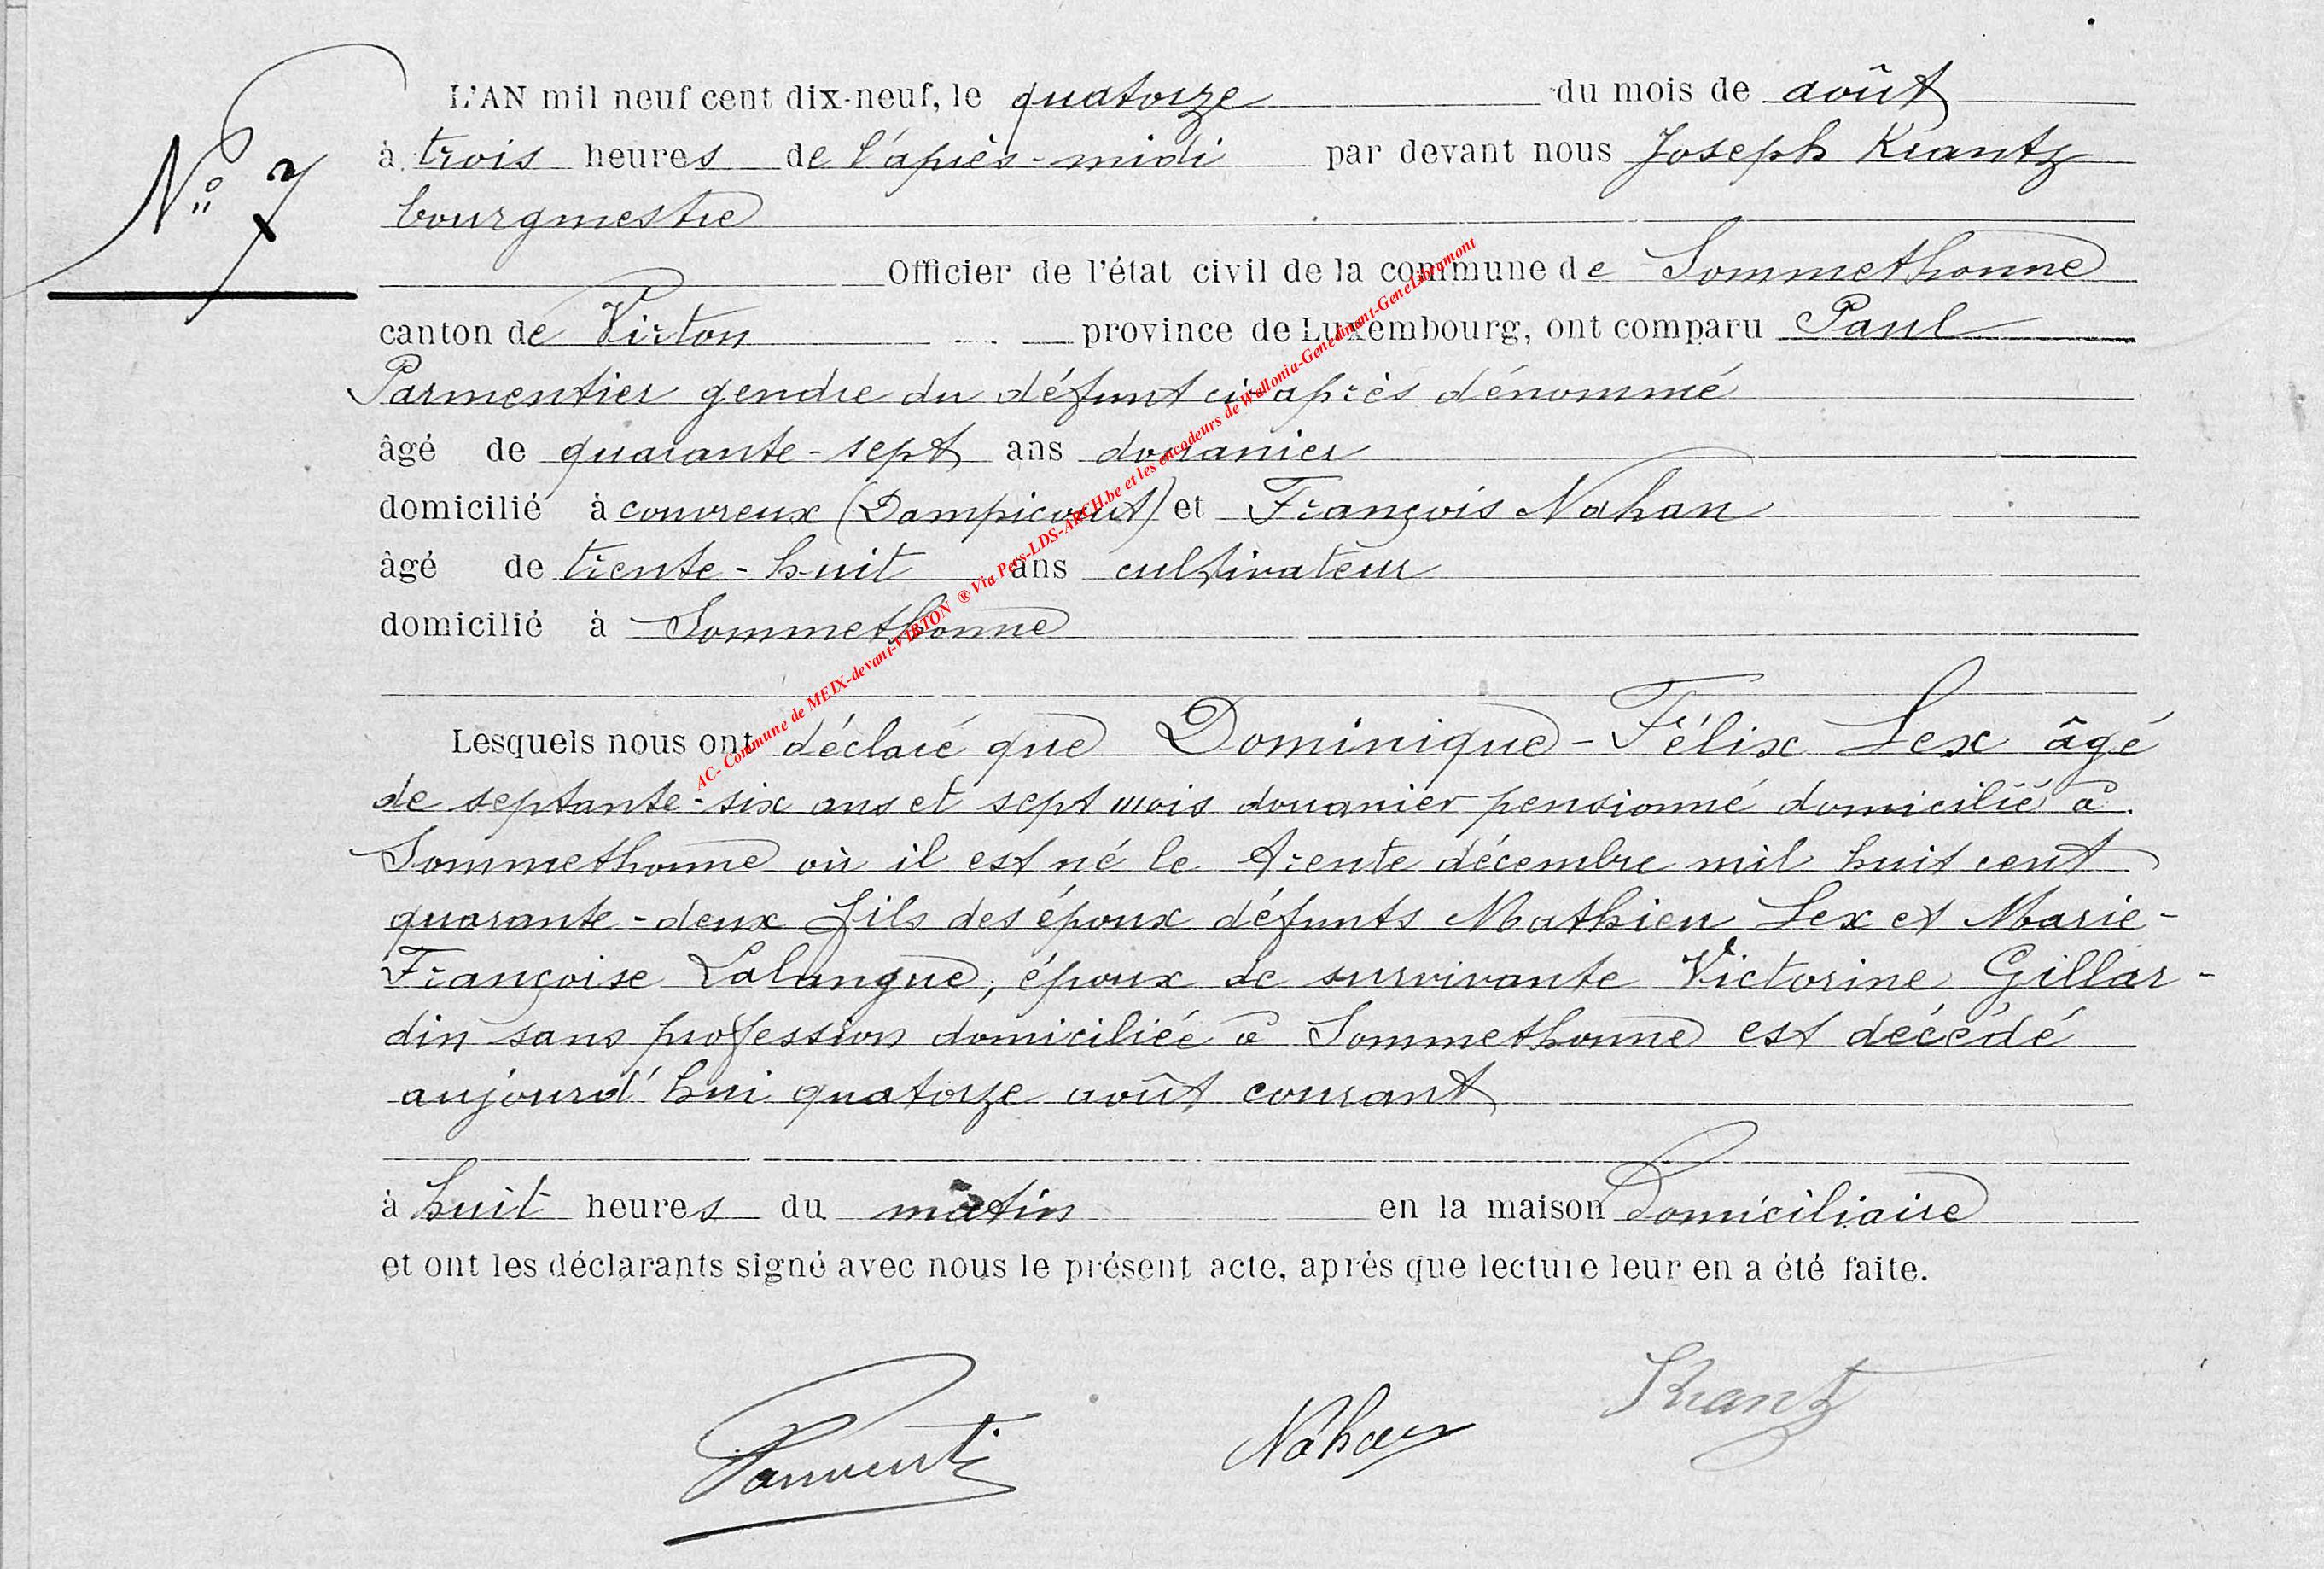 L'AN mil neuf cent dix-neuf, le quatorze du mois de août
à trois heures de l'après-midi par devant nous Joseph Krantz
N° 7
bourgmestre
Officier de l'état civil de la commune de Sommethonne
canton de Virton province de Luxembourg, ont comparu Paul
Parmentier gendre du défunt ci après dénommé
âgé de quarante-sept ans douanier
domicilié à couvreux (Dampicourt) et François Nahan
âgé de trente-huit ans cultivateur
domicilié à Sommethonne
AC- Commune de MEIX-devant-VIRTON ® Via Pers-LDS-ARCH.be et les encodeurs de Wallonia-Genedinant-GeneLibramont
Lesquels nous ont déclaré que Dominique-Félix Lex âgé
de septante-six ans et sept mois douanier pensionné domicilié à
Sommethonne où il est né le trente décembre mil huit cent
quarante-deux fils des époux défunts Mathieu Lex et Marie-
Françoise Lalangue, époux de survivante Victorine Gillar-
din sans profession domiciliée à Sommethonne est décédé
aujourd'hui quatorze août courant
à huit heures du matin en la maison domiciliaire
et ont les déclarants signé avec nous le présent acte, après que lecture leur en a été faite.
Nahan Krantz